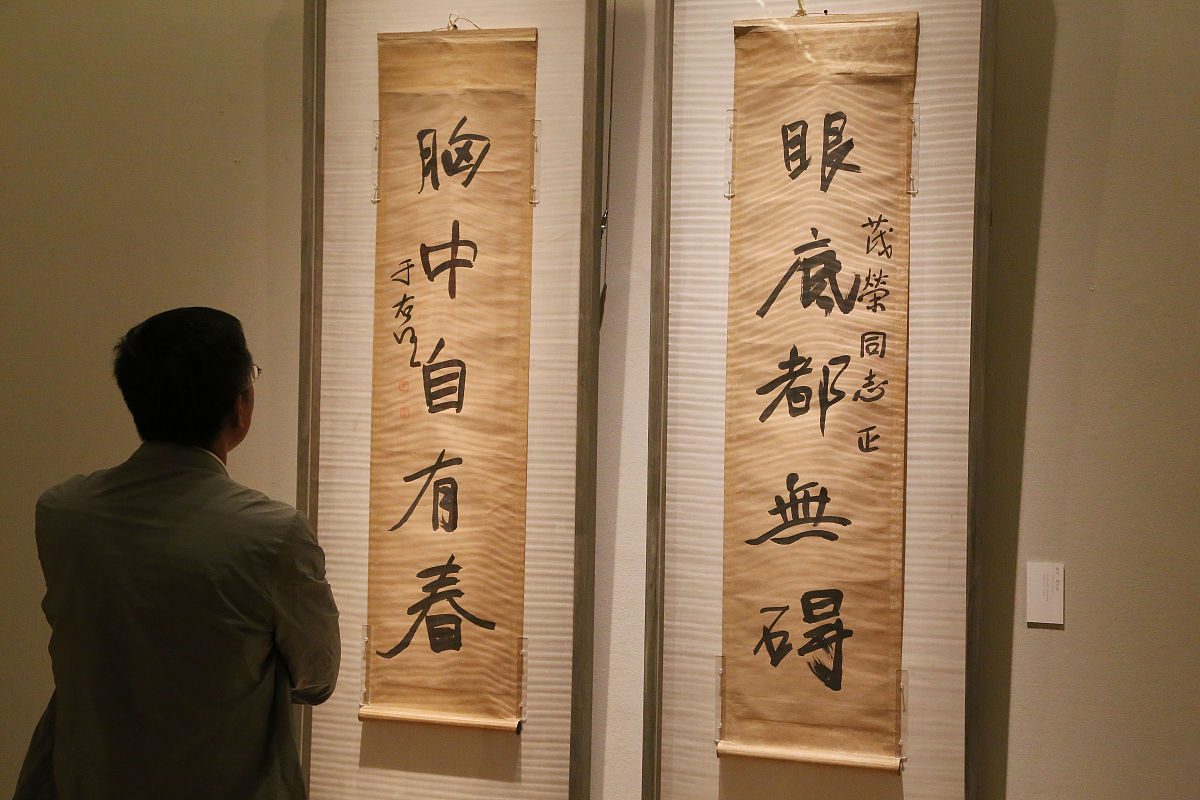 眼底都無碍
茂榮同志正
胸中自有春
于右任